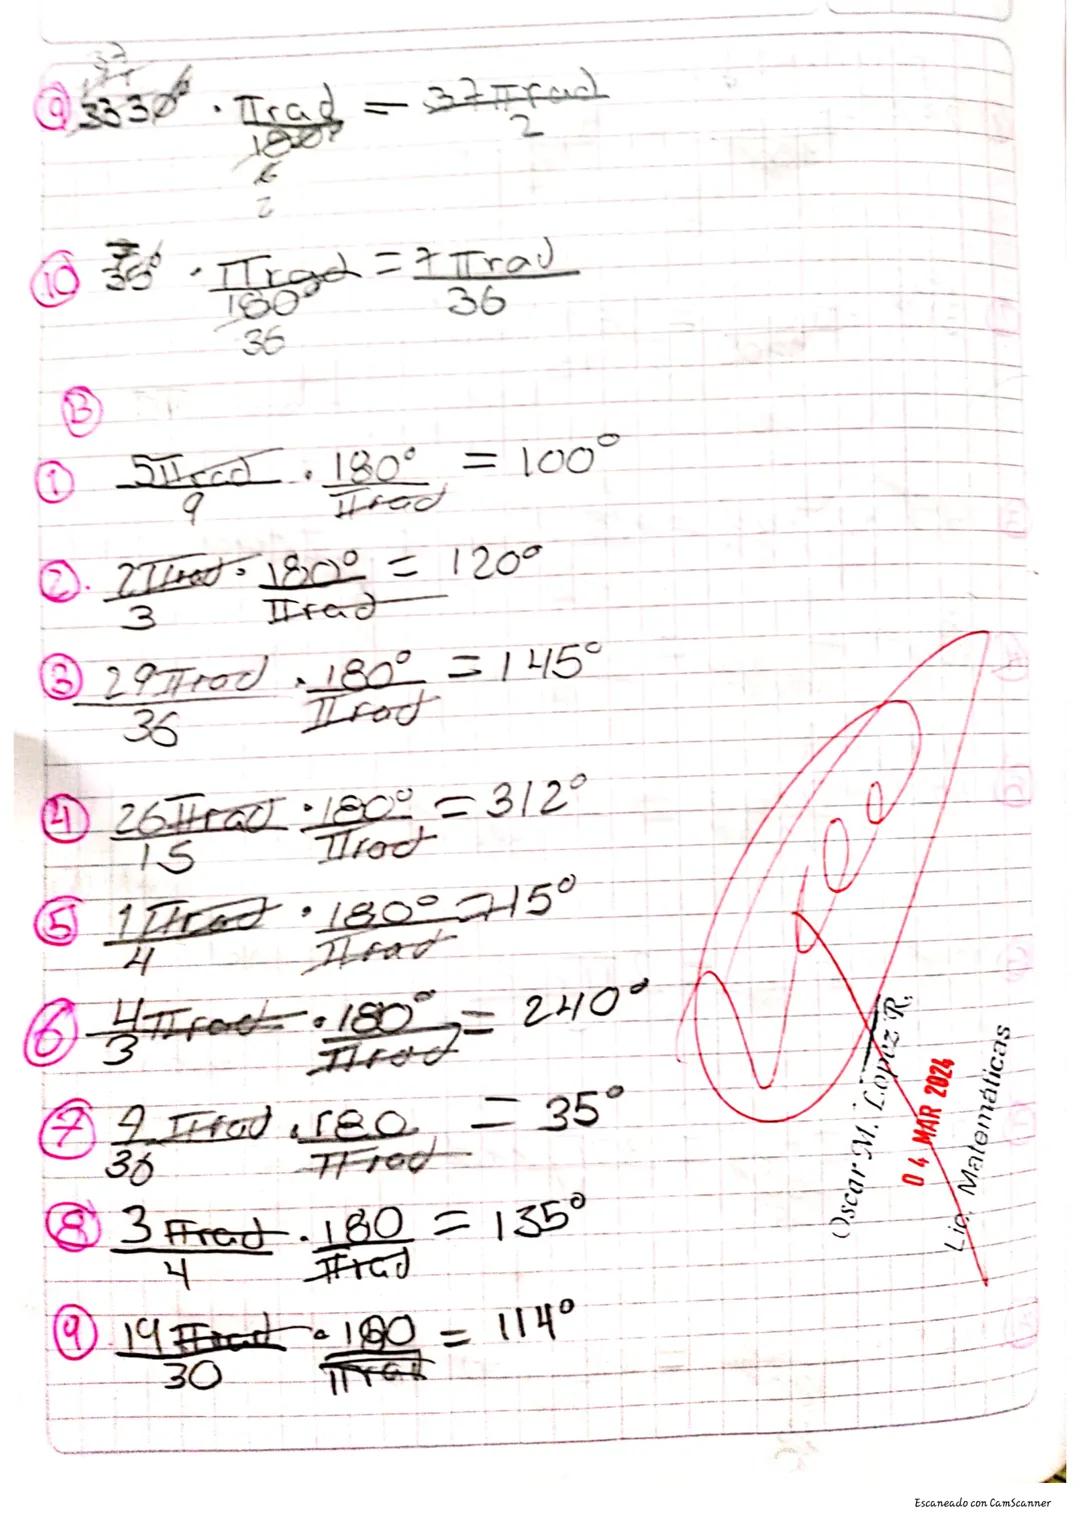 9 3330° · πrad / 180° = 37πrad / 2
37
6
2
10 35° · πrad / 180° = 7πrad / 36
7
36
B
1 5πrad / 9 · 180° / πrad = 100°
2. 2πrad / 3 · 180° / πrad = 120°
3 29πrad / 36 · 180° / πrad = 145°
4 26πrad / 15 · 180° / πrad = 312°
5 1πrad / 4 · 180° / πrad = 15°
6 4πrad / 3 · 180° / πrad = 240°
7 πrad / 36 · 180 / πrad = 35°
8 3πrad / 4 · 180 / πrad = 135°
9 19πrad / 30 · 180 / πrad = 114°
Oscar M. López R.
04 MAR 2024
Lic. Matemáticas
Escaneado con CamScanner